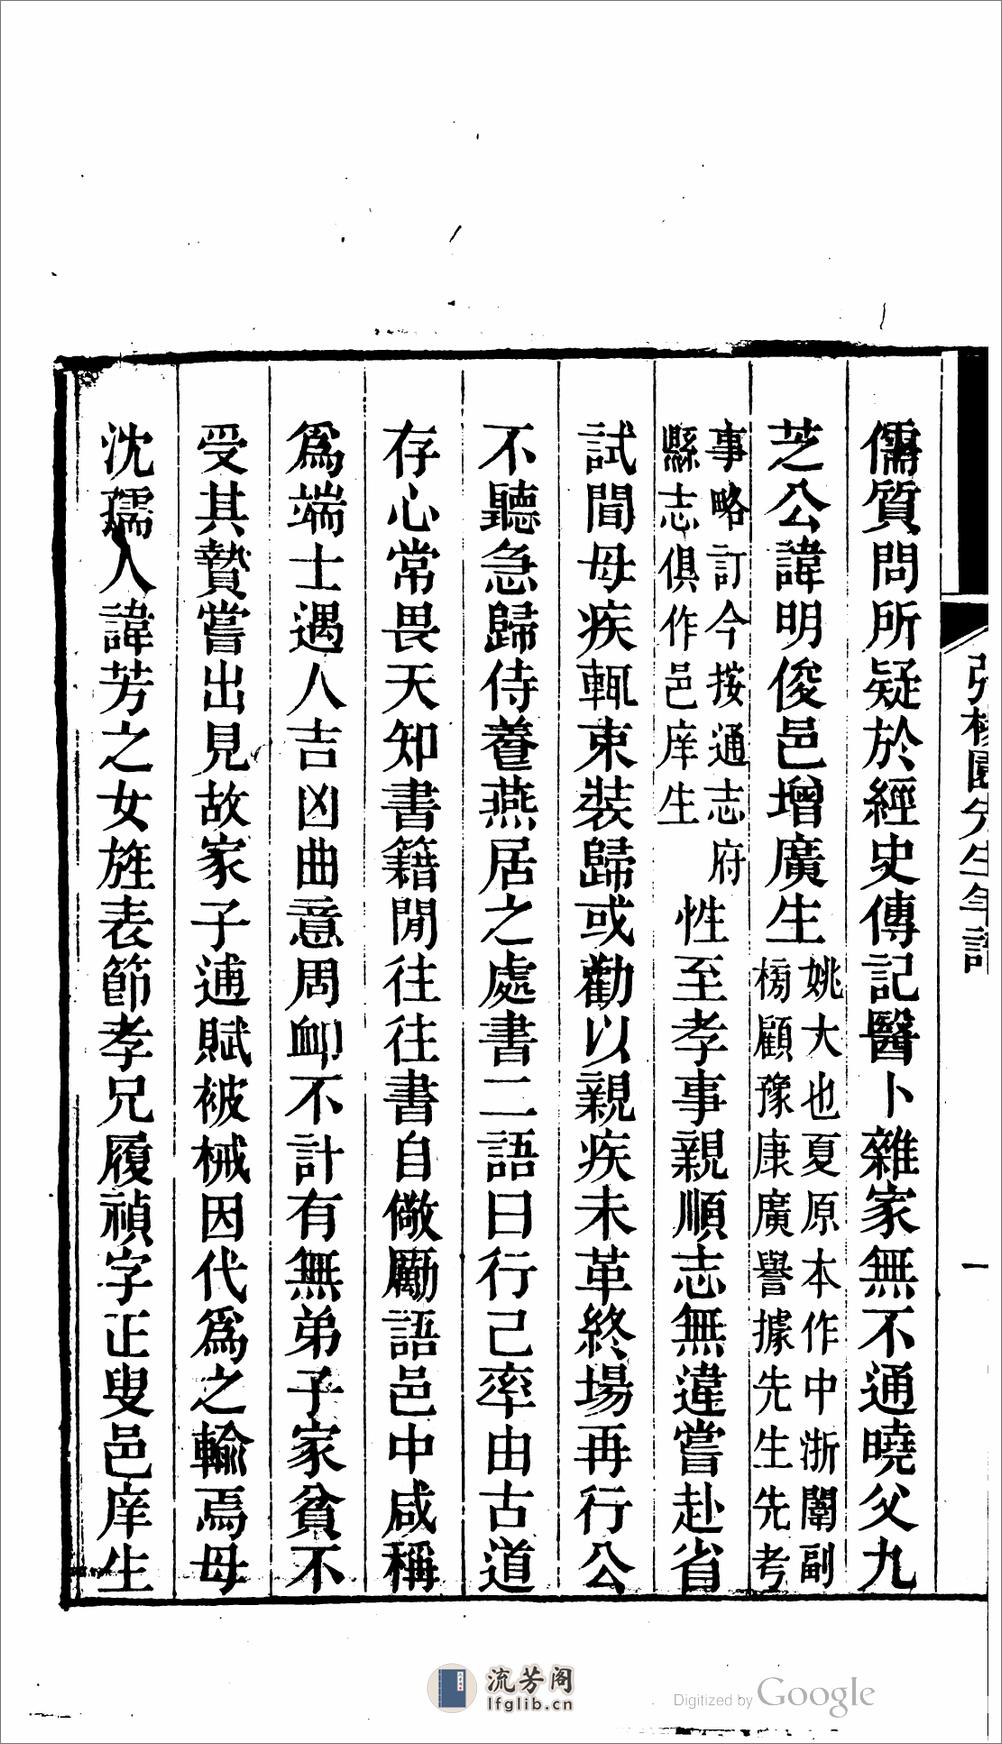 張楊園先生年譜
一
儒質問所疑於經史傳記醫卜雜家無不通曉父九
芝公諱明俊邑增廣生姚大也夏原本作中浙闈副
榜顧豫康廣譽據先生先考
事略訂今按通志府
縣志俱作邑庠生
性至孝事親順志無違嘗赴省
試聞母疾輒束裝歸或勸以親疾未革終場再行公
不聽急歸侍養燕居之處書二語曰行己率由古道
存心常畏天知書籍閒往往書自儆勵語邑中咸稱
為端士遇人吉凶曲意周卹不計有無弟子家貧不
受其贄嘗出見故家子逋賦被械因代為之輸焉母
沈孺人諱芳之女旌表節孝兄履禎字正叟邑庠生
流芳阁
lfglib.cn
Digitized by Google